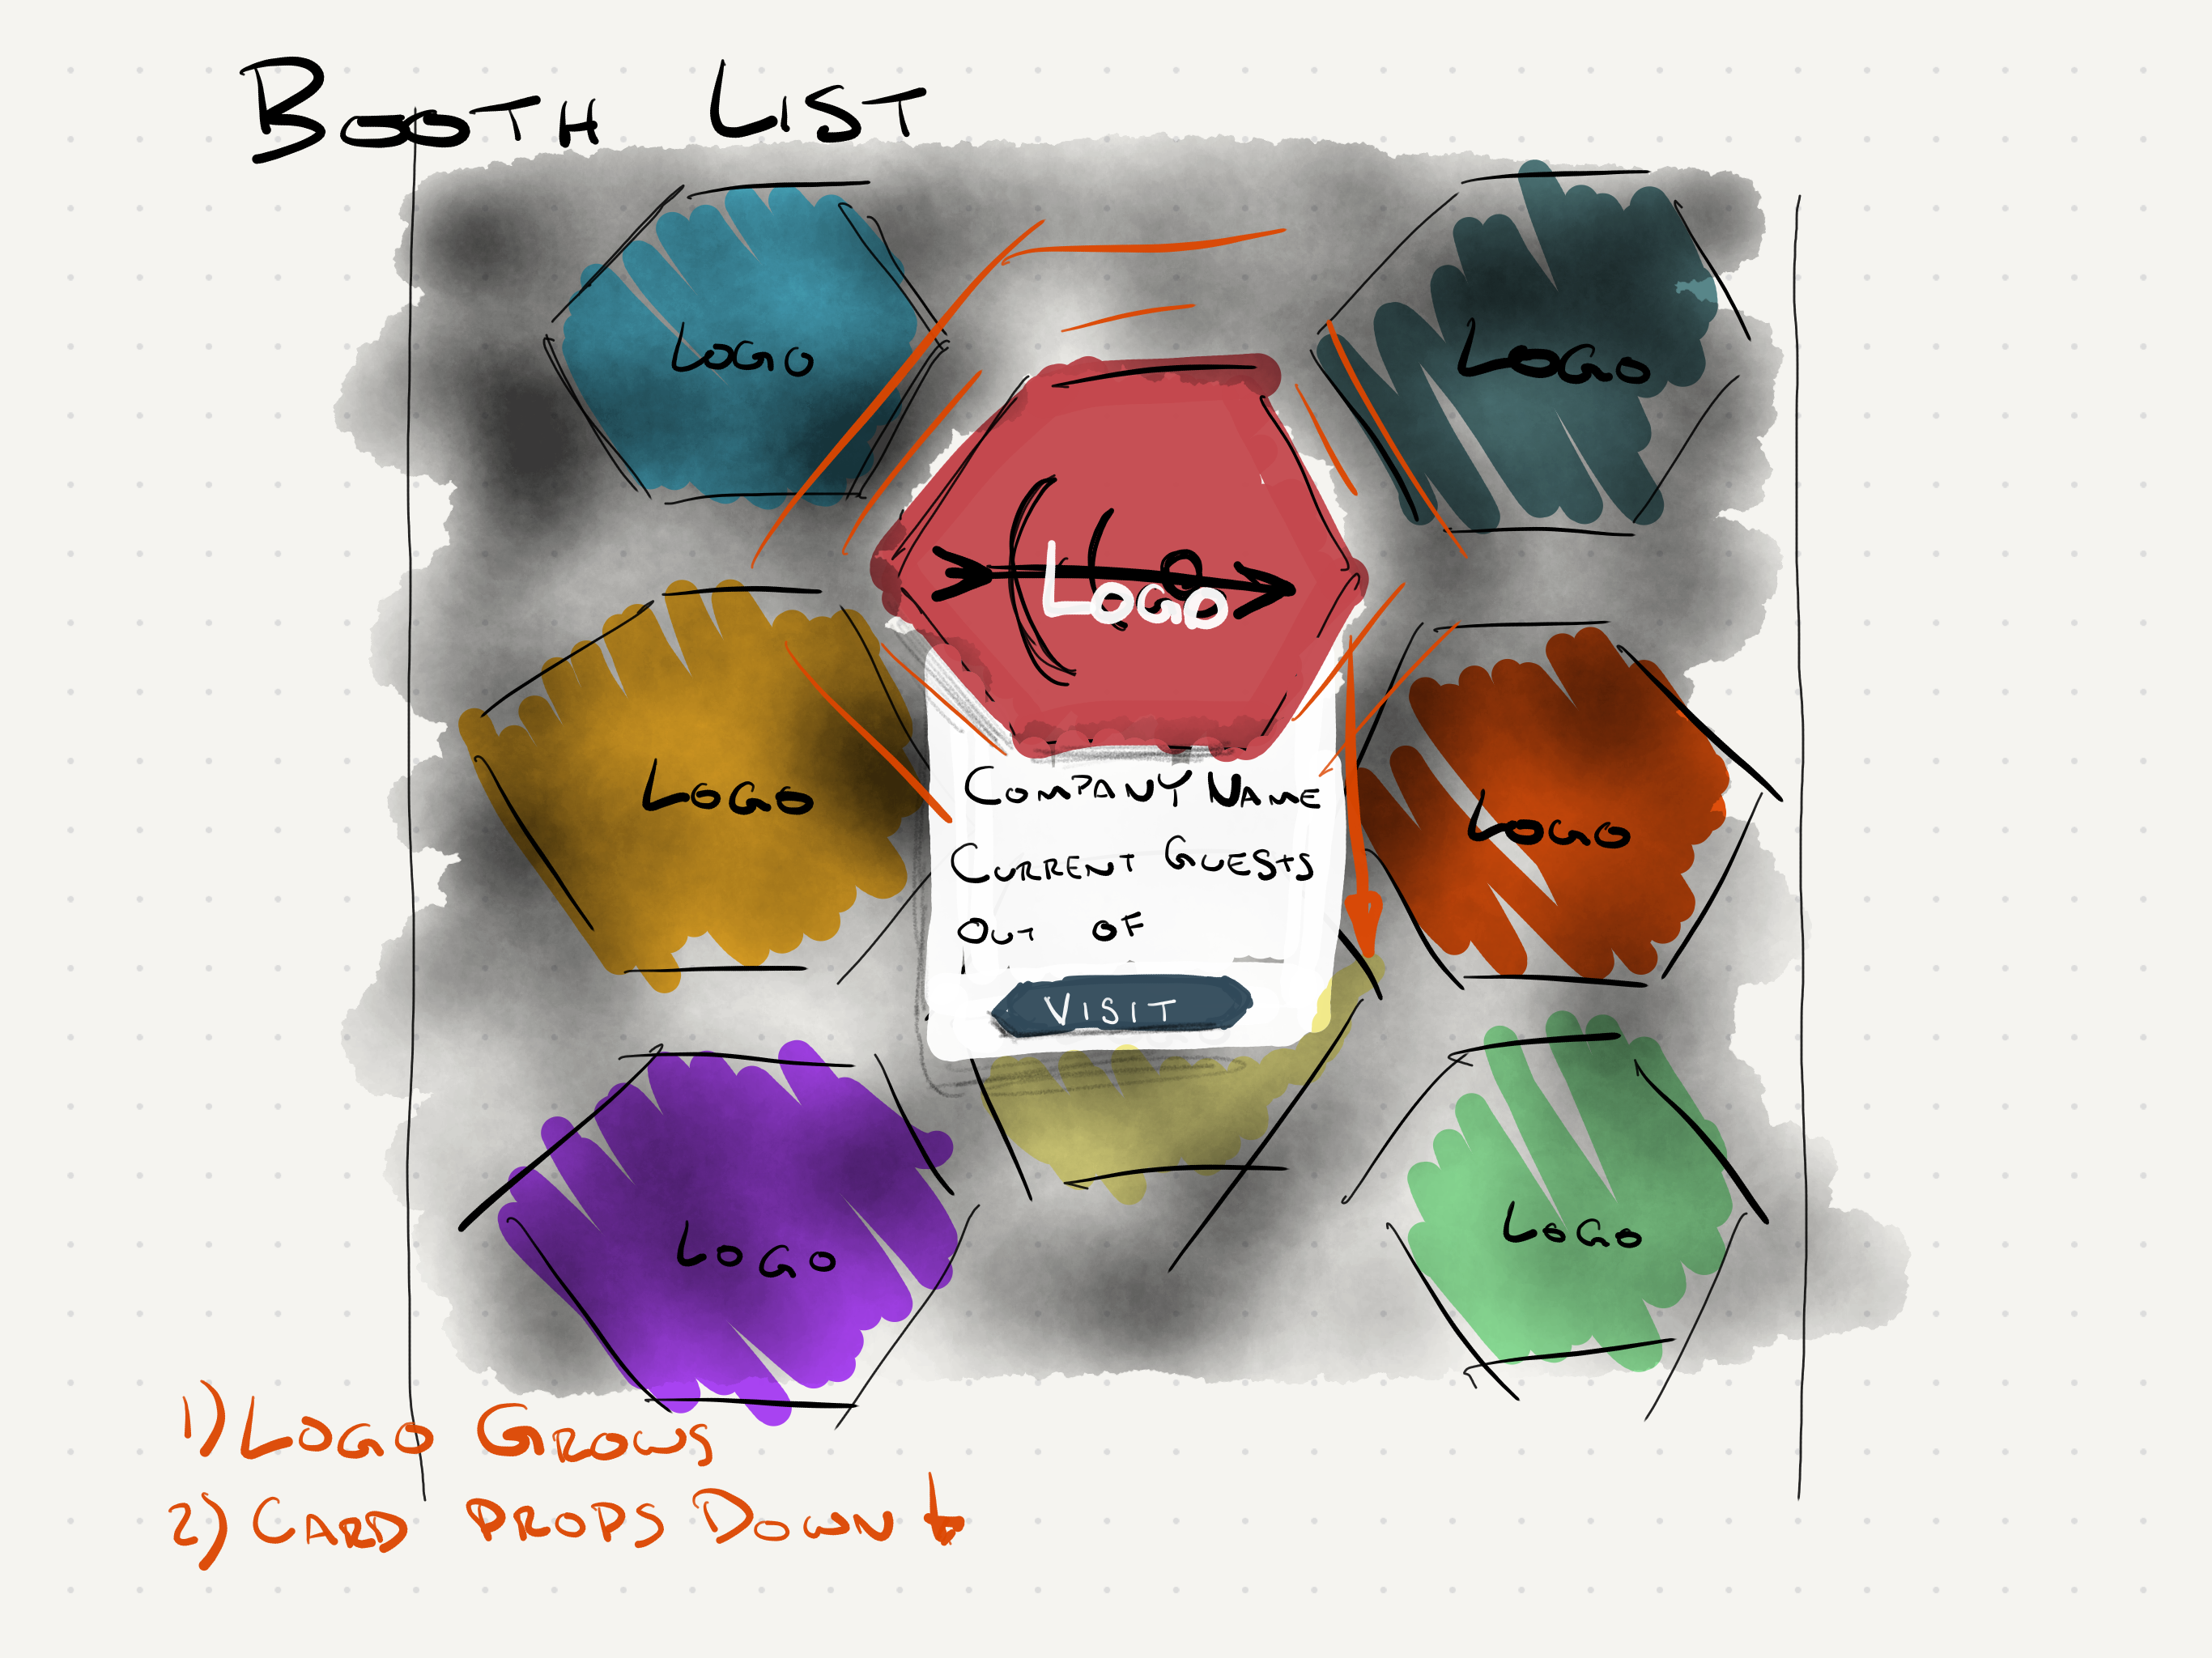 BOOTH LIST
LOGO
LOGO
LOGO
LOGO
LOGO
COMPANY NAME
CURRENT GUESTS
OUT OF
VISIT
LOGO
LOGO
1) LOGO GROWS
2) CARD DROPS DOWN